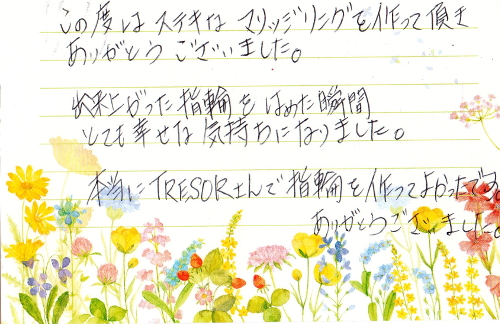 この度は ステキな マリッジリングを作って頂き
ありがとう ございました。
出来上がった指輪を はめた瞬間
とても幸せな気持ちになりました。
本当に TRESORさんで指輪を作ってよかったです。
ありがとうございました。